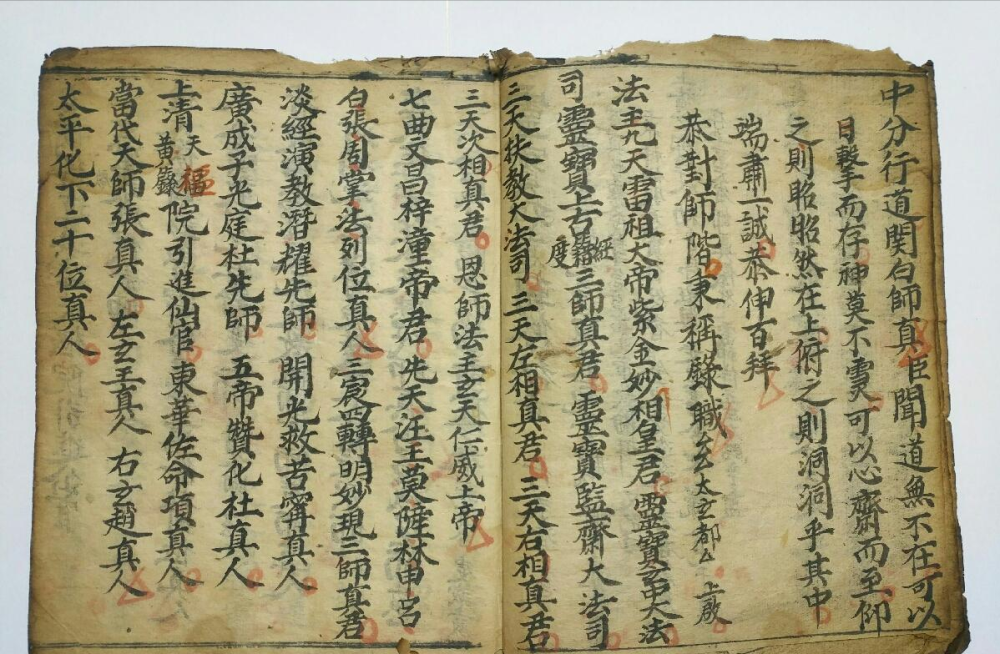 中分行道関白師真臣聞道無不在可以
目擊而存神莫不灵可以心齋而至仰
之則昭昭然在上俯之則洞洞乎其中
端肅一誠恭伸百拜
恭對師階秉稱錄職ム玄太玄都ム上啟
法主九天雷祖大帝紫金妙相皇君靈寶玄中大法
司靈寶上古經籍度三師真君靈寶監齋大法司
三天扶教大法司三天左相真君三天右相真君
三天次相真君恩師法主玄天仁威上帝
七曲文昌梓潼帝君先天汪王莫陳林申呂
白張周掌法列位真人三宸四轉明妙現三師真君
淡經演教潛耀先師開光救苦甯真人
廣成子光庭杜先師五帝贊化杜真人
上清天樞黃籙院引進仙官東華佐命項真人
當代天師張真人左玄王真人右玄趙真人
太平化下二十位真人